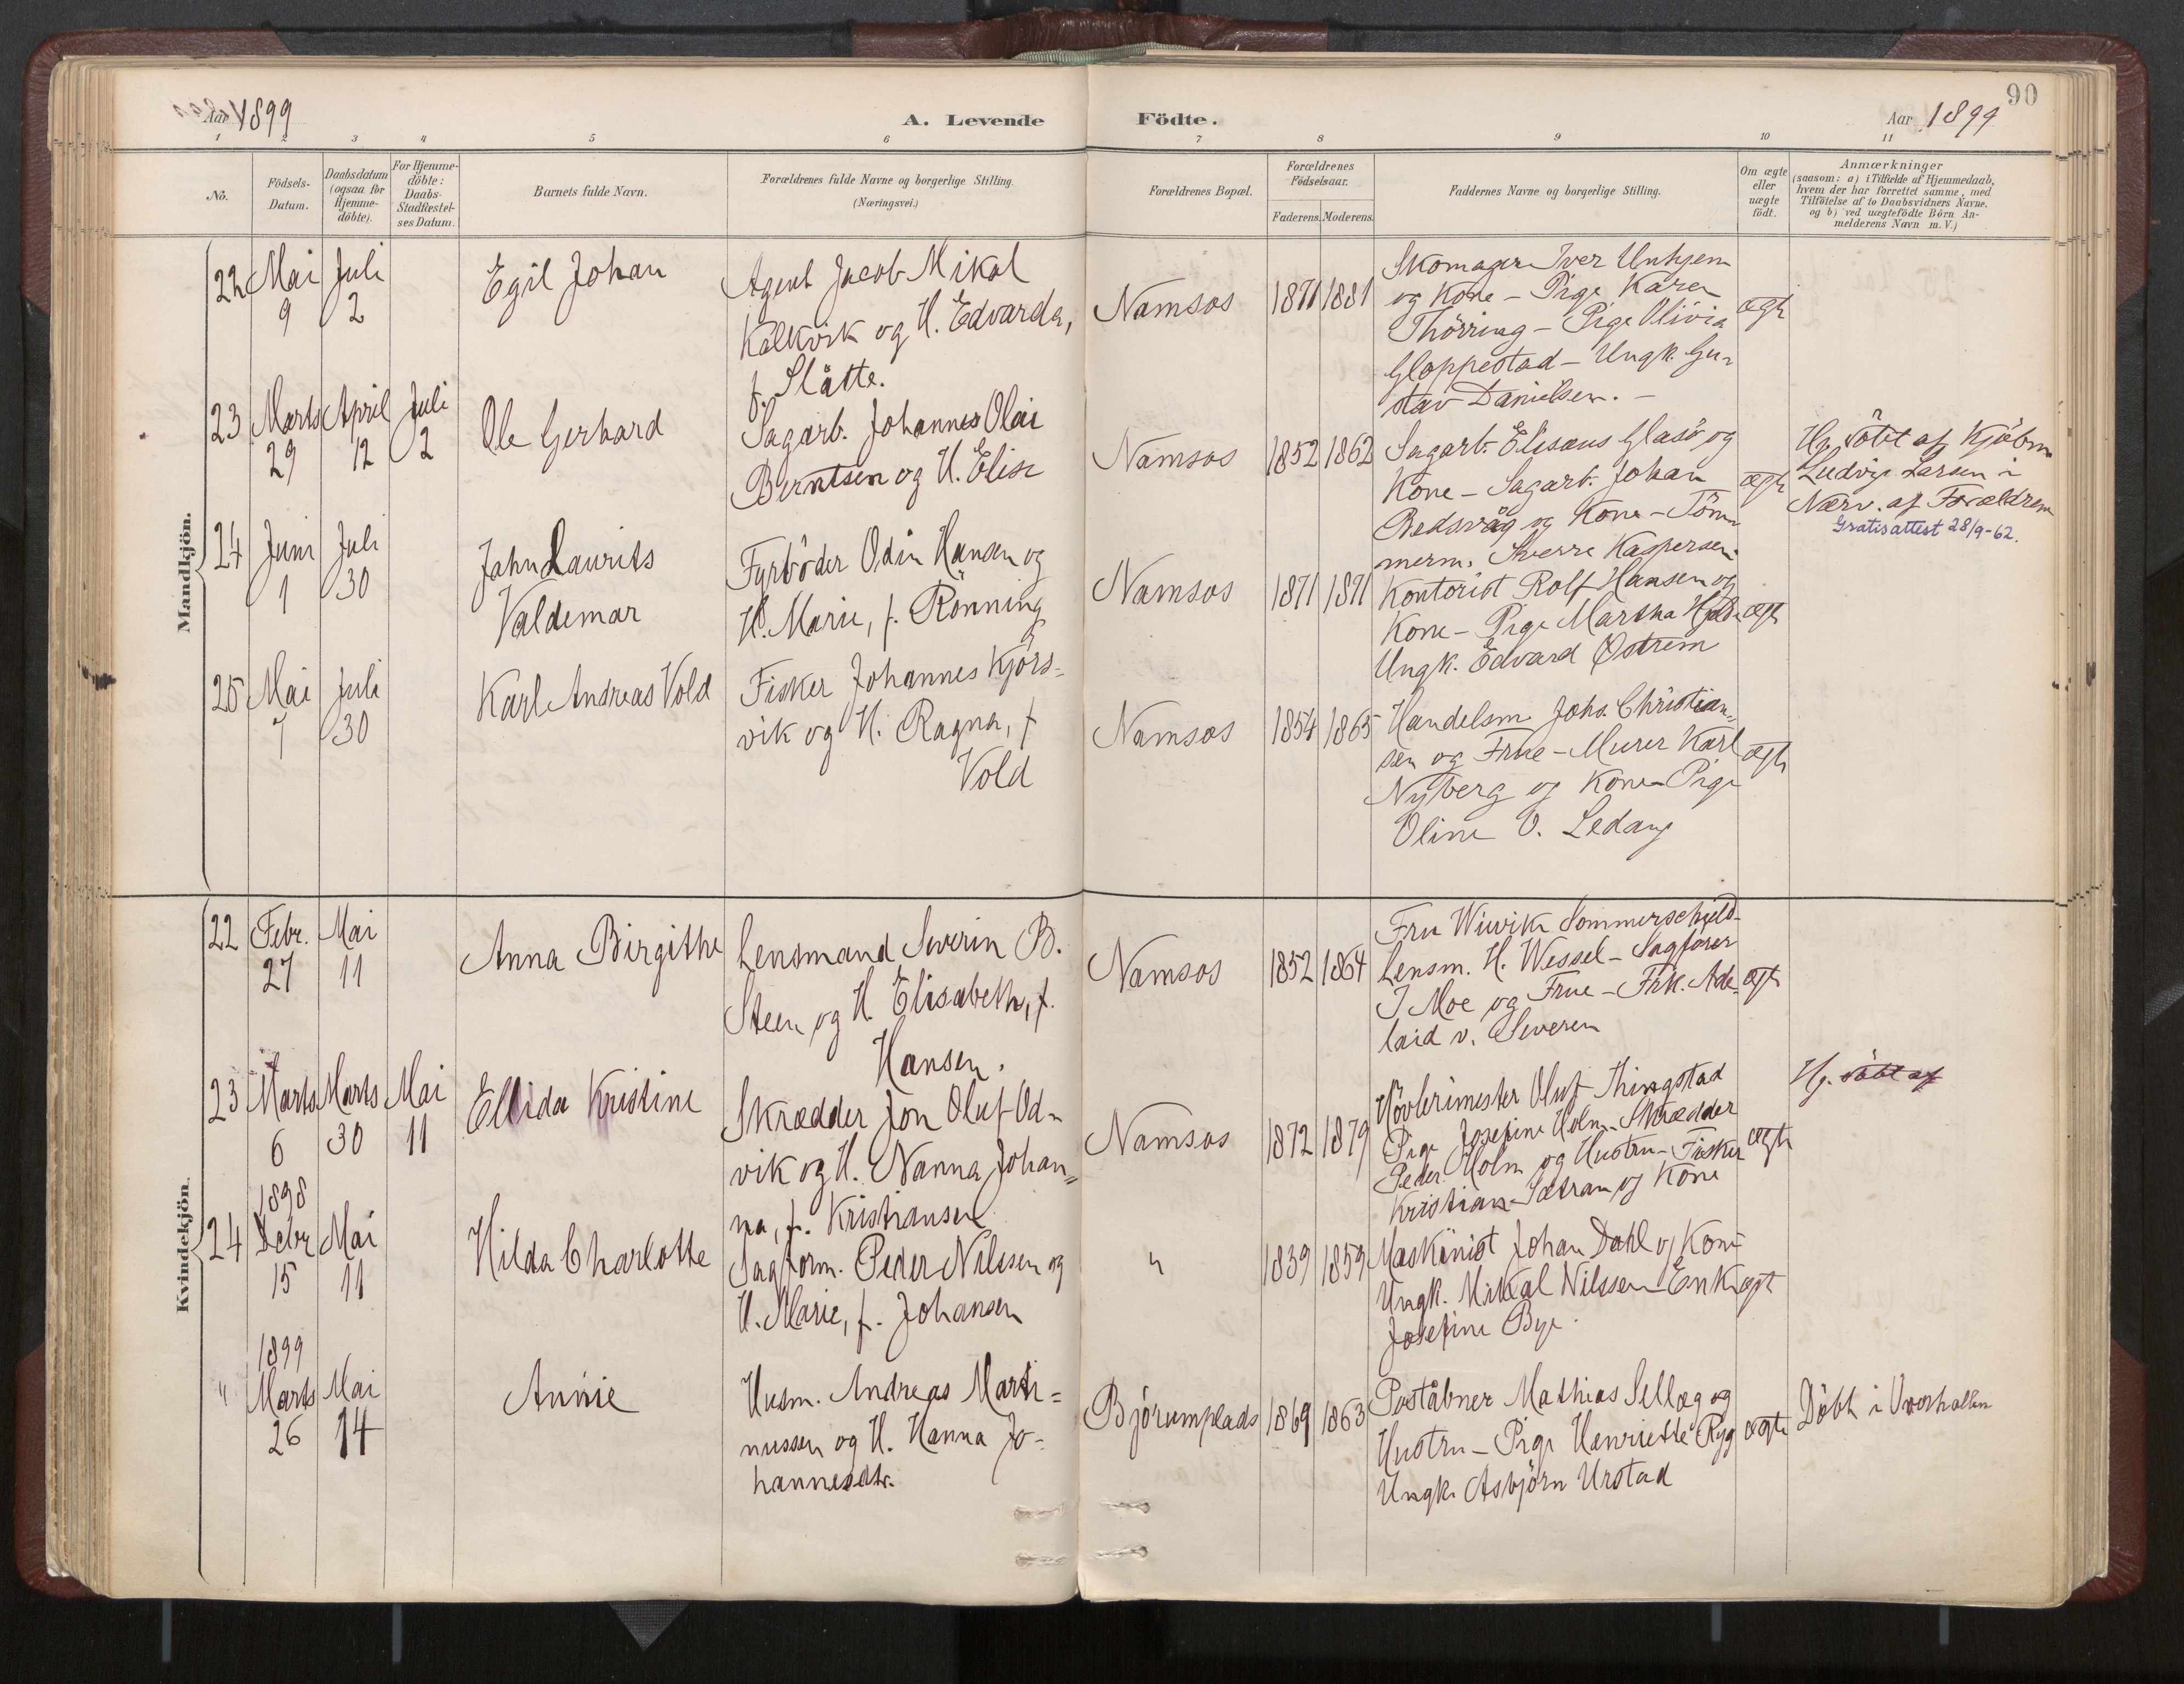 90
Aar 1899
A. Levende
Födte.
Aar 1899
1 2 3 4 5 6 7 8 9 10 11
No.
Födsels-
Datum.
Daabsdatum
(ogsaa for
Hjemme-
döbte).
For Hjemme-
döbte:
Daabs-
Stadfæstel-
ses Datum.
Barnets fulde Navn.
Forældrenes fulde Navne og borgerlige Stilling.
(Næringsvei.)
Forældrenes Bopæl.
Forældrenes
Födselsaar.
Faderens. Moderens.
Faddernes Navne og borgerlige Stilling.
Om ægte
eller
uægte
födt.
Anmærkninger
(saasom: a) i Tilfælde af Hjemmedaab,
hvem der har forrettet samme, med
Tilföielse af to Daabsvidners Navne.
og b) ved uægtefödte Börn An-
melderens Navn m. V.)
Mandkjön.
22
Mai
9
Juli
2
Egil Johan
Agent Jacob Mikal
Kalkvik og H. Edvarda,
f. Slåtte.
Namsos
1871
1881
Skomager Iver Unhjem
og Kone - Pige Karen
Thörring - Pige Olivia
Gloppestad - Ungk. Gu-
stav Danielsen. -
ægte
23
Marts
29
April
12
Juli
2
Ole Gerhard
Sagarb. Johannes Olai
Berntsen og H. Elise
Namsos
1852
1862
Sagarb. Elisæus Glasö og
Kone - Sagarb. Johan
Bedsvåg og Kone - Töm-
merm. Sverre Kaspersen.
ægte
Hj. döbt af Kjöbm
Ludvig Larsen i
Nærv. af Forældrene
Gratisattest 28/9-62.
24
Juni
1
Juli
30
John Laurits
Valdemar
Fyrböder Odin Hansen og
H. Marie, f. Rönning
Namsos
1871
1871
Kontorist Rolf Hansen og
Kone - Pige Martha
Ungk. Edvard Östrem
ægte
25
Mai
7
Juli
30
Karl Andreas Vold
Fisker Johannes Kjörs-
vik og H. Ragna, f
Vold
Namsos
1854
1865
Handelsm. Johs. Christian-
sen og Frue - Murer Karl
Nyberg og Kone - Pige
Oline O. Ledang
ægte
Kvindekjön.
22
Febr.
27
Mai
11
Anna Birgithe
Lensmand Severin B.
Steen og H. Elisabeth, f.
Hansen.
Namsos
1852
1864
Fru Wiwike Sommerschield
Lensm. H. Wessel - Sagförer
I Moe og Frue - Frk. Ade-
laid v. Severen
ægte
23
Marts
6
Marts
30
Mai
11
Ellida Kristine
Skrædder Jon Oluf Od-
vik og H. Nanna Johan-
na, f. Kristiansen
Namsos
1872
1879
Hövlerimester Oluf Thingstad
Pige Josefine Holm - Skrædder
Peder Holm og Hustru - Fisker
Kristian Sætran og Kone
ægte
Hj. döbt af
24
1898
Debr
15
Mai
11
Hilda Charlotte
Sagform. Peder Nilssen og
H. Marie, f. Johansen
"
1839
1859
Maskinist Johan Dahl og Kone
Ungk. Mikal Nilssen - Enke
Josefine Bye.
ægte
"
1899
Marts
26
Mai
14
Annie
Husm. Andreas Marti-
nussen og H. Hanna Jo-
hannesdtr.
Björumplads
1869
1863
Poståbner Mathias Sellæg og
Hustru - Pige Henriette Ryg
Ungk. Asbjörn Urstad
ægte
Döbt i Overhallen